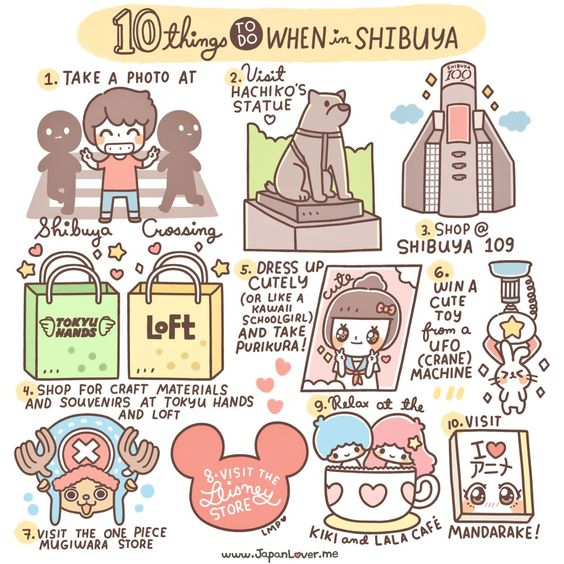 10 things TO DO WHEN in SHIBUYA
1. TAKE A PHOTO AT
Shibuya Crossing
2. Visit
HACHIKO'S
STATUE
SHIBUYA
109
3. SHOP @
SHIBUYA 109
TOKYU
HANDS
LOFT
4. SHOP FOR CRAFT MATERIALS
AND SOUVENIRS AT TOKYU HANDS
AND LOFT
5. DRESS UP
CUTELY
(OR LIKE A
KAWAII
SCHOOLGIRL)
AND TAKE
PURIKURA!
Cute
6.
WIN A
CUTE
TOY
from a
UFO
(CRANE)
MACHINE
7. VISIT THE ONE PIECE
MUGIWARA STORE
8. VISIT THE
Disney
STORE
LMP
9. Relax at the
KIKI and LALA CAFÉ
10. VISIT
I ♡
アニメ
MANDARAKE!
www.JapanLover.me